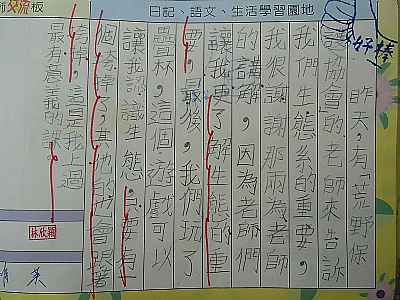 師交流板
日記、語文、生活學習園地
好棒
昨天，有「荒野保
護協會的老師來告訴
我們生態系的重要，
我很謝謝那兩為老師
的講解，因為老師們
讓我更了解生態的重
要，最後，我們玩了
疊杯，這個遊戲可以
讓我認識生態，只要有一
個旁掉了，其他的也會跟著
掉，這是我上過
最有意義的課
林欣穎